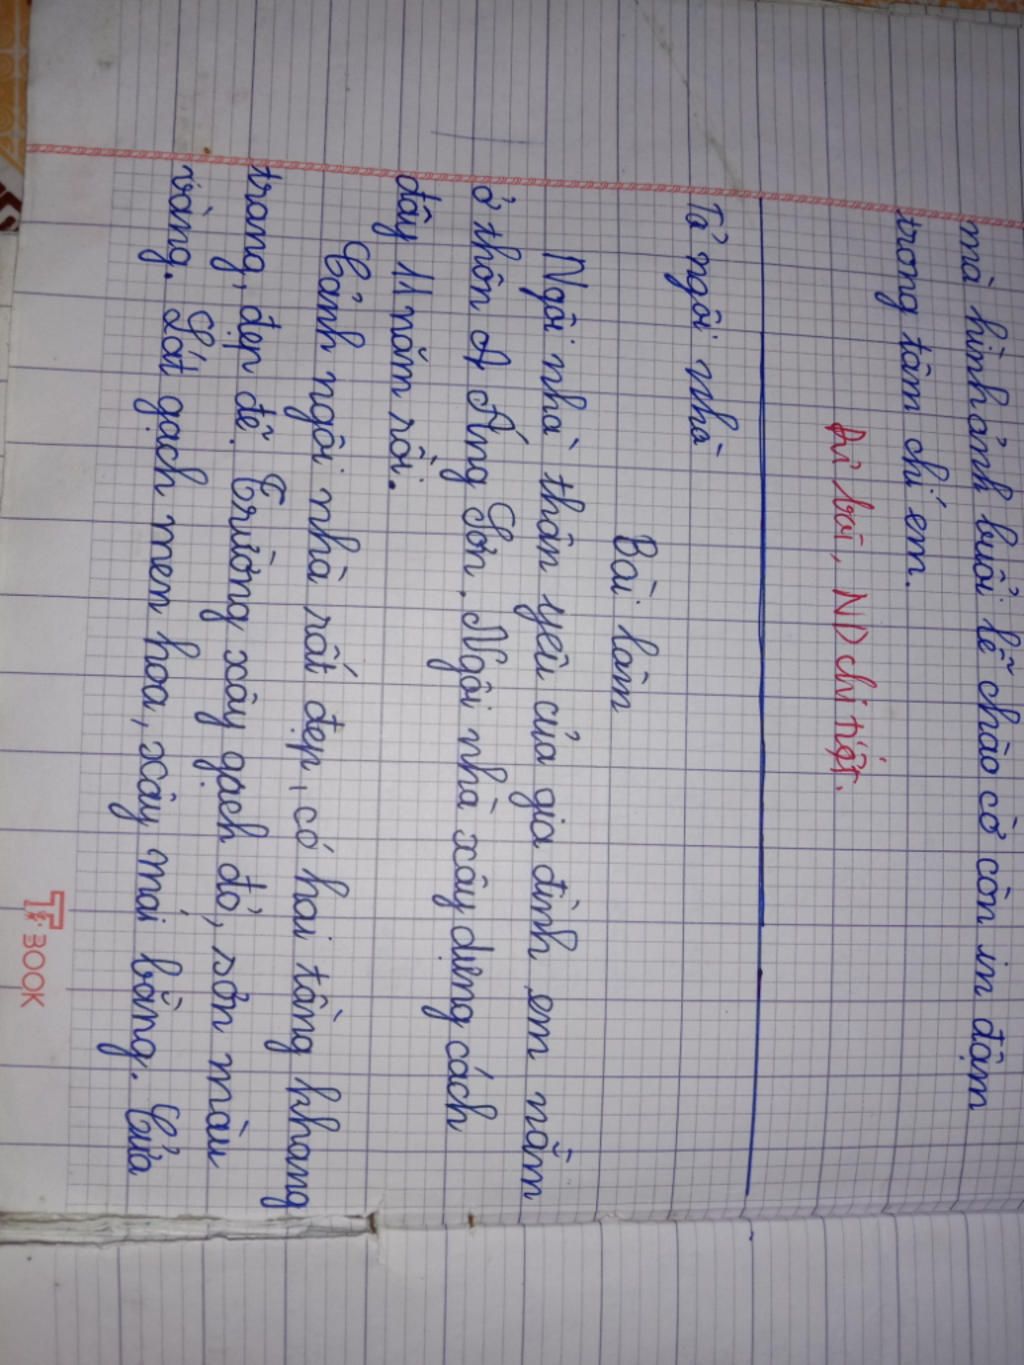 mà hình ảnh buổi lễ chào cờ còn in đậm
trong tâm chí em.
Đủ bài, ND chi tiết.
Tả ngôi nhà
Bài làm
Ngôi nhà thân yêu của gia đình em nằm
ở thôn A Áng Sơn. Ngôi nhà xây dựng cách
đây 11 năm rồi.
Cảnh ngôi nhà rất đẹp, có hai tầng khang
trang, đẹp đẽ. Trường xây gạch đỏ, sơn màu
vàng. Lát gạch men hoa, xây mái bằng. Cửa
BOOK